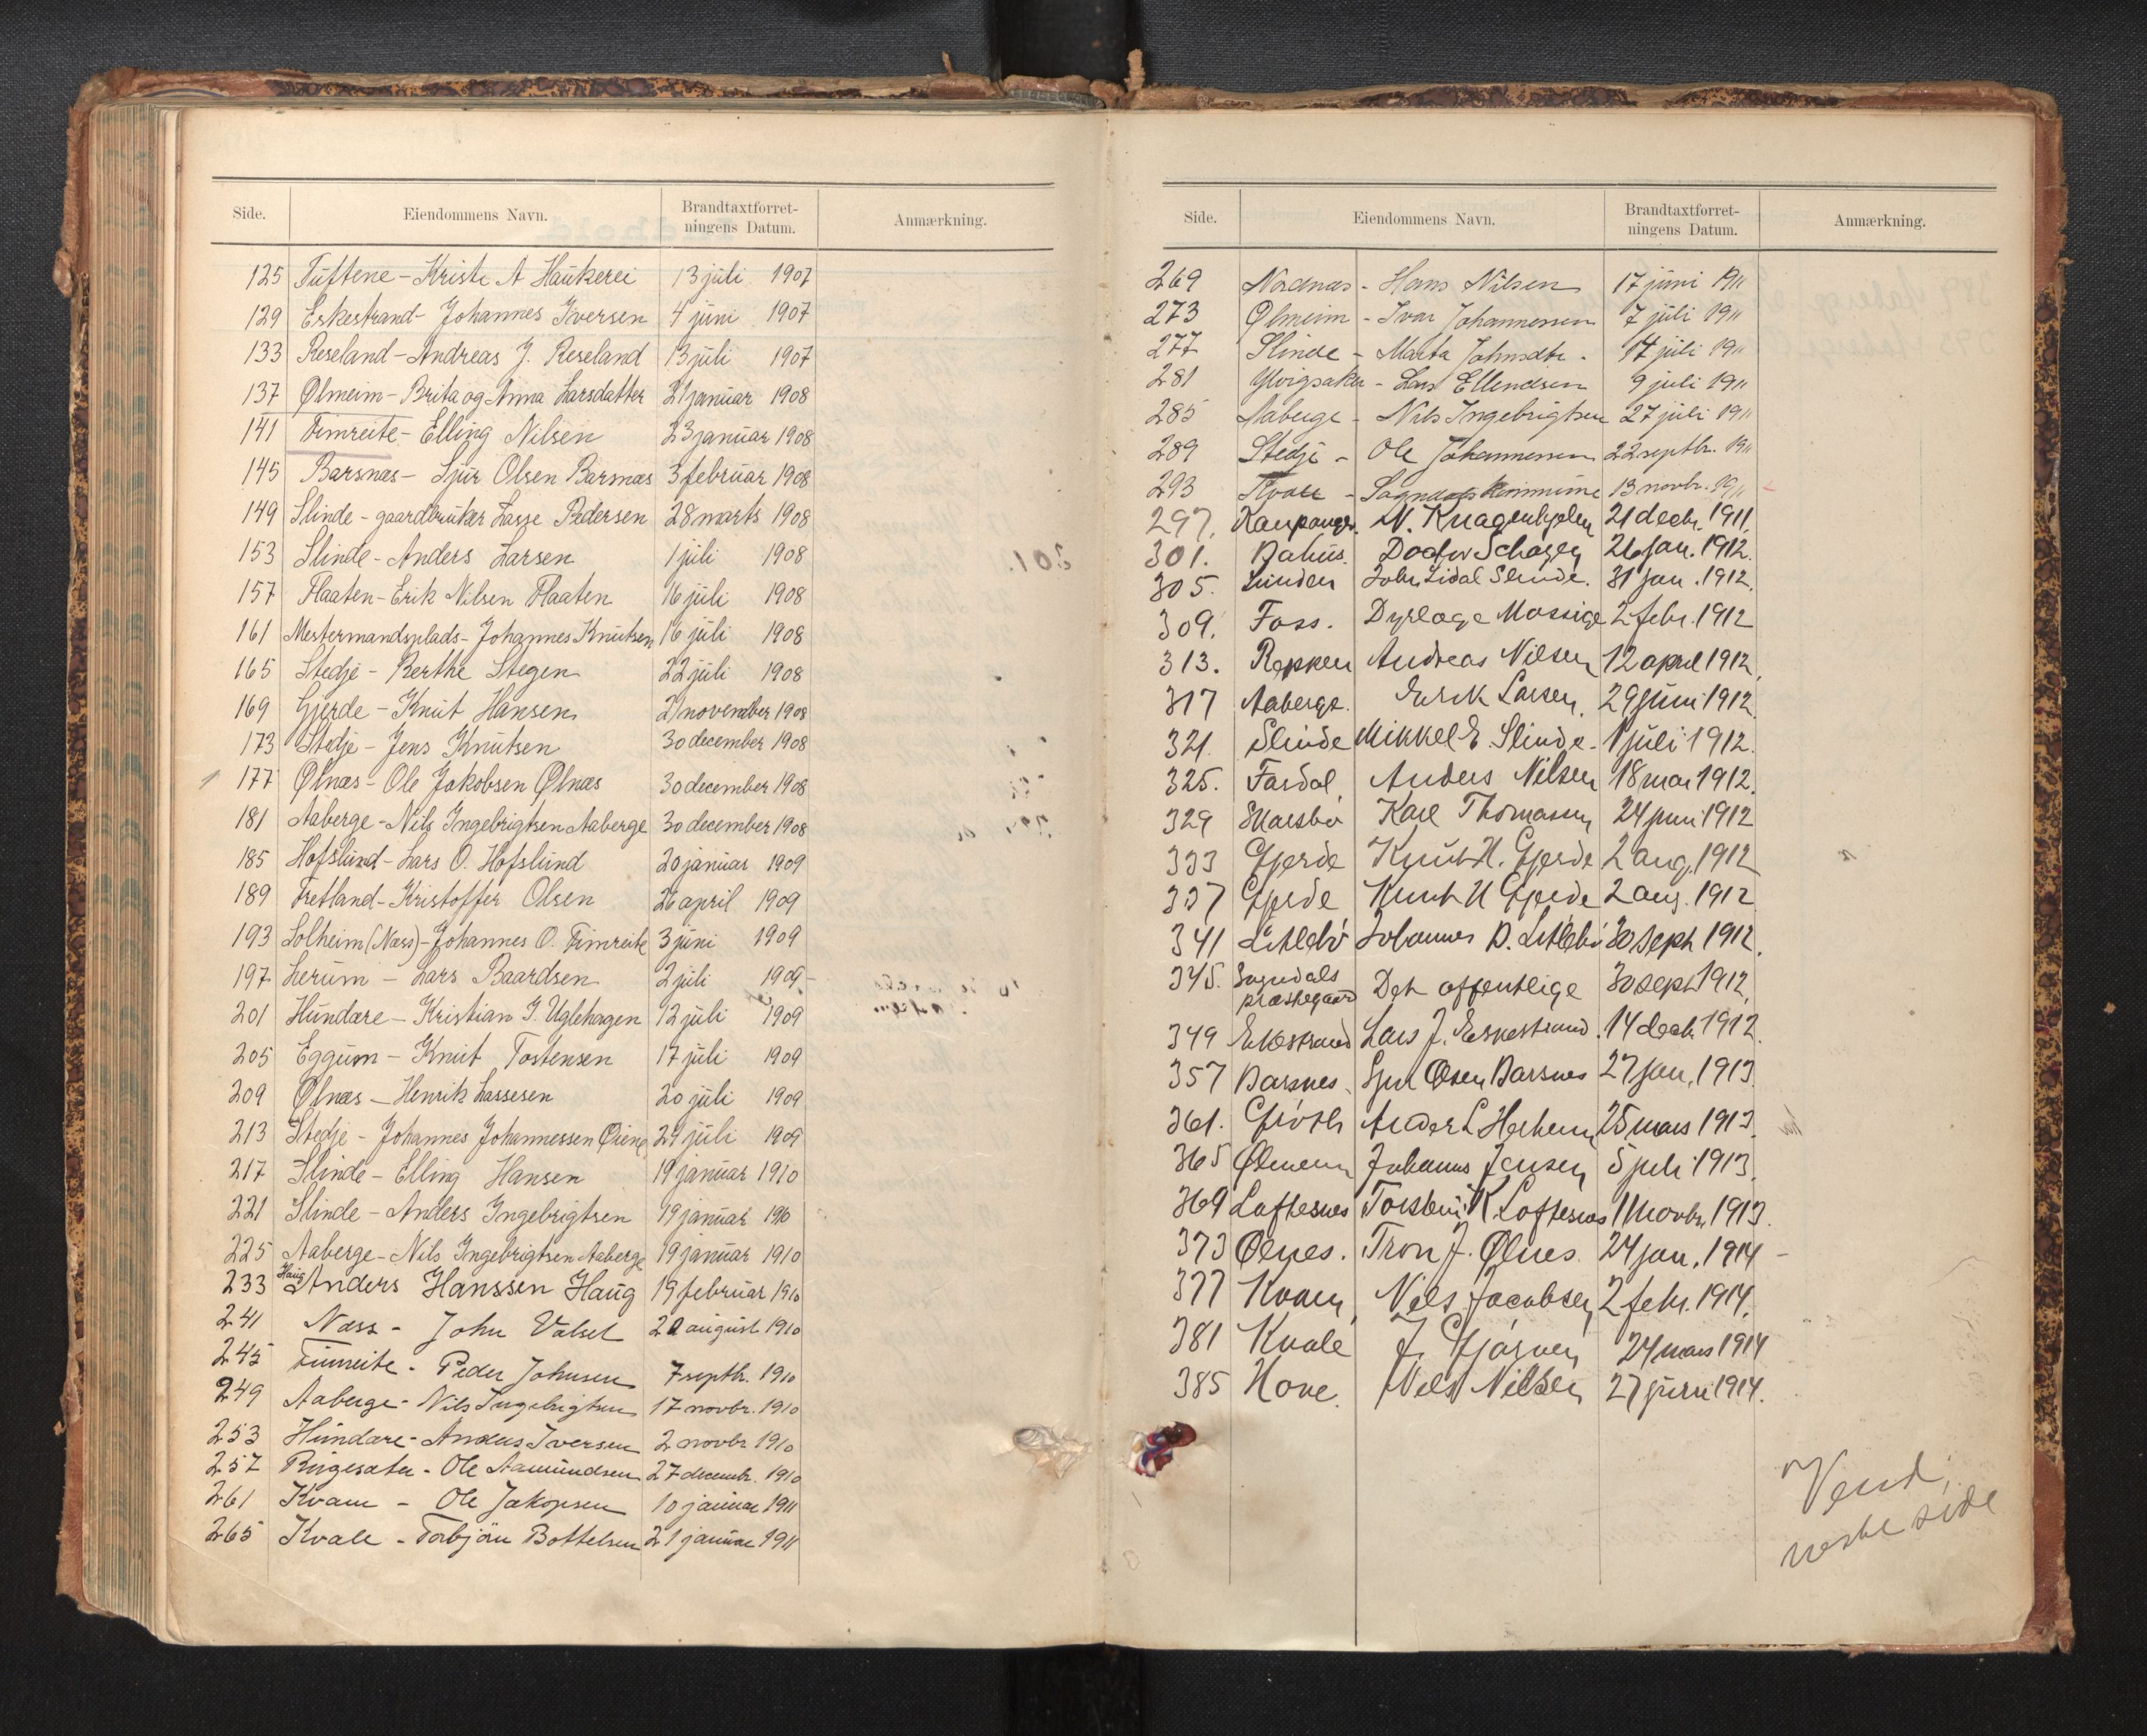 Side. Eiendommens Navn. Brandtaxtforret-
ningens Datum. Anmærkning.
125 Tuftene - Kristi A Haukerei 13 juli 1907
129 Eskestrand - Johannes Iversen 4 juni 1907
133 Reseland - Andreas J. Reseland 13 juli 1907
137 Ølmeim - Brita og Anna Larsdatter 21 januar 1908
141 Fimreite - Elling Nilsen 23 januar 1908
145 Barsnæs - Sjur Olsen Barsnæs 3 februar 1908
149 Slinde - gaardbruker Lasse Pedersen 28 marts 1908
153 Slinde - Anders Larsen 1 juli 1908
157 Flaaten - Erik Nilsen Flaaten 16 juli 1908
161 Mestermandsplads - Johannes Knutsen 16 juli 1908
165 Stedje - Berthe Stegen 22 juli 1908
169 Gjerde - Knut Hansen 21 november 1908
173 Stedje - Jens Knutsen 30 december 1908
177 Ølnæs - Ole Jakobsen Ølnæs 30 december 1908
181 Aaberge - Nils Ingebrigtsen Aaberge 30 december 1908
185 Hofslund - Lars O. Hofslund 20 januar 1909
189 Fretland - Kristoffer Olsen 26 april 1909
193 Solheim (Næss) - Johannes O. Fimreite 3 juni 1909
197 Lerum - Lars Baardsen 2 juli 1909
201 Hundere - Kristian J. Uglehagen 12 juli 1909
205 Eggum - Knut Tostensen 17 juli 1909
209 Ølnæs - Henrik Lassesen 20 juli 1909
213 Stedje - Johannes Johannessen Øiene 29 juli 1909
217 Slinde - Elling Hansen 19 januar 1910
221 Slinde - Anders Ingebrigtsen 19 januar 1910
225 Aaberge - Nils Ingebrigtsen Aaberge 19 januar 1910
233 Haug Anders Hanssen Haug 19 februar 1910
241 Næss - John Valset 20 august 1910
245 Fimreite - Peder Johnsen 7 septbr. 1910
249 Aaberge - Nils Ingebrigtsen 17 novbr. 1910
253 Hundere - Anders Iversen 2 novbr 1910
257 Ringesæter - Ole Aamundsen 27 decembr. 1910
261 Kvam - Ole Jakopsen 10 januar 1911
265 Kvale - Torbjön Bottelsen 21 januar 1911
Side. Eiendommens Navn. Brandtaxtforret-
ningens Datum. Anmærkning.
269 Nadnæs - Hans Nilsen 17 juni 1911
273 Ølmeim - Ivar Johannessen 7 juli 1911
277 Slinde - Marta Johnsdtr. 17 juli 1911
281 Ylvisaker - Lars Ellendsen 9 juli 1911
285 Aaberge - Nils Ingebrigtsen 27 juli 1911
289 Stedje - Ole Johannessen 22 septbr. 1911
293 Kvale - Sogndals Kommune 13 novbr. 1911
297. Kaupanger. N. Knagenhjelm 21 decbr. 1911.
301. Bahus. Doctor Schagen 26 jan. 1912.
305. Lunden John Lidal Slinde. 31 jan. 1912.
309. Foss. Dyrlæge Mossige 2 febr. 1912
313. Reppen Andreas Nilsen 12 april 1912.
317 Aaberge. Erik Larsen. 29 juni 1912.
321. Slinde Mikkel E. Slinde. 1 juli 1912.
325. Fardal. Anders Nilsen 18 mai 1912.
329 Skarsbø Karl Thomassen 24 juni 1912
333 Gjerde Knut H. Gjerde 2 aug. 1912
337 Gjerde Knut H Gjerde 2 aug. 1912
341 Litlebø Johannes P. Litlebø 30 sept 1912.
345. Sogndals
præstegaard Det offentlige 30 sept 1912.
349 Eskestrand Lars J. Eskestrand 14 decbr. 1912.
357 Barsnes. Sjur Olsen Barsnes 27 jan. 1913.
361. Grøth Anders L. 25 mars 1913.
365 Ølmeim Johannes Jensen 5 juli 1913.
369 Loftesnes Torstein K. Loftesnes 11 novbr. 1913.
373 Ølnes. Tron J. Ølnes. 24 jan. 1914
377 Kvam, Nils Jacobsen 2 febr. 1914.
381 Kvale J. 24 mars 1914
385 Hove. Nils Nilsen 27 juni 1914.
Vend,
næste side